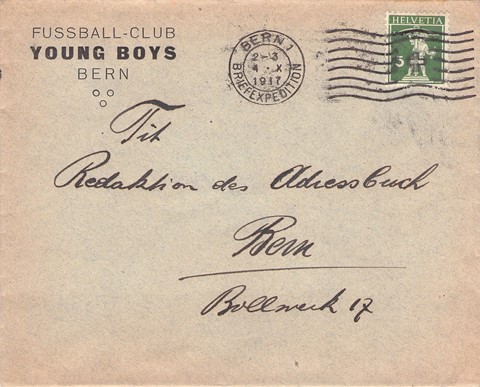 FUSSBALL-CLUB
YOUNG BOYS
BERN
BERN 1
2-3
4. X
1917
BRIEFEXPEDITION
HELVETIA
5
Tit
Redaktion des Adressbuch
Bern
Bollwerk 17